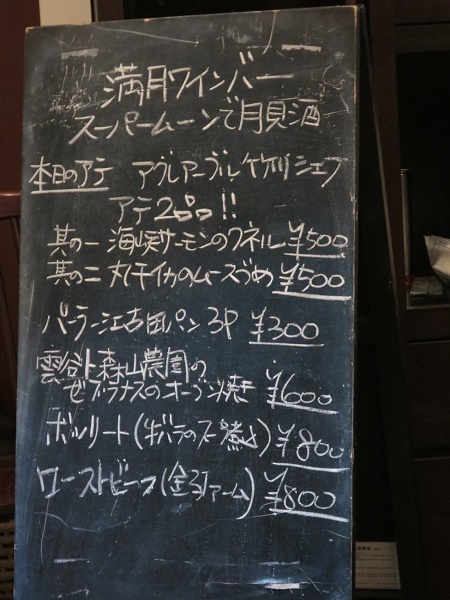 満月ワインバー
スーパームーンで月見酒
本日のアテ アヴルアーブル ケケリ シェフ
アテ2品!!
其の一 海峡サーモンのクネル ¥500
其の二 丸干イカのムースづめ ¥500
パーラー江古田パン 3P ¥300
雲谷ト森山農園の
ゼブラナスのオーブン焼き ¥600
ボルリート(牛バラのスープ煮) ¥800
ローストビーフ(金子ファーム) ¥800